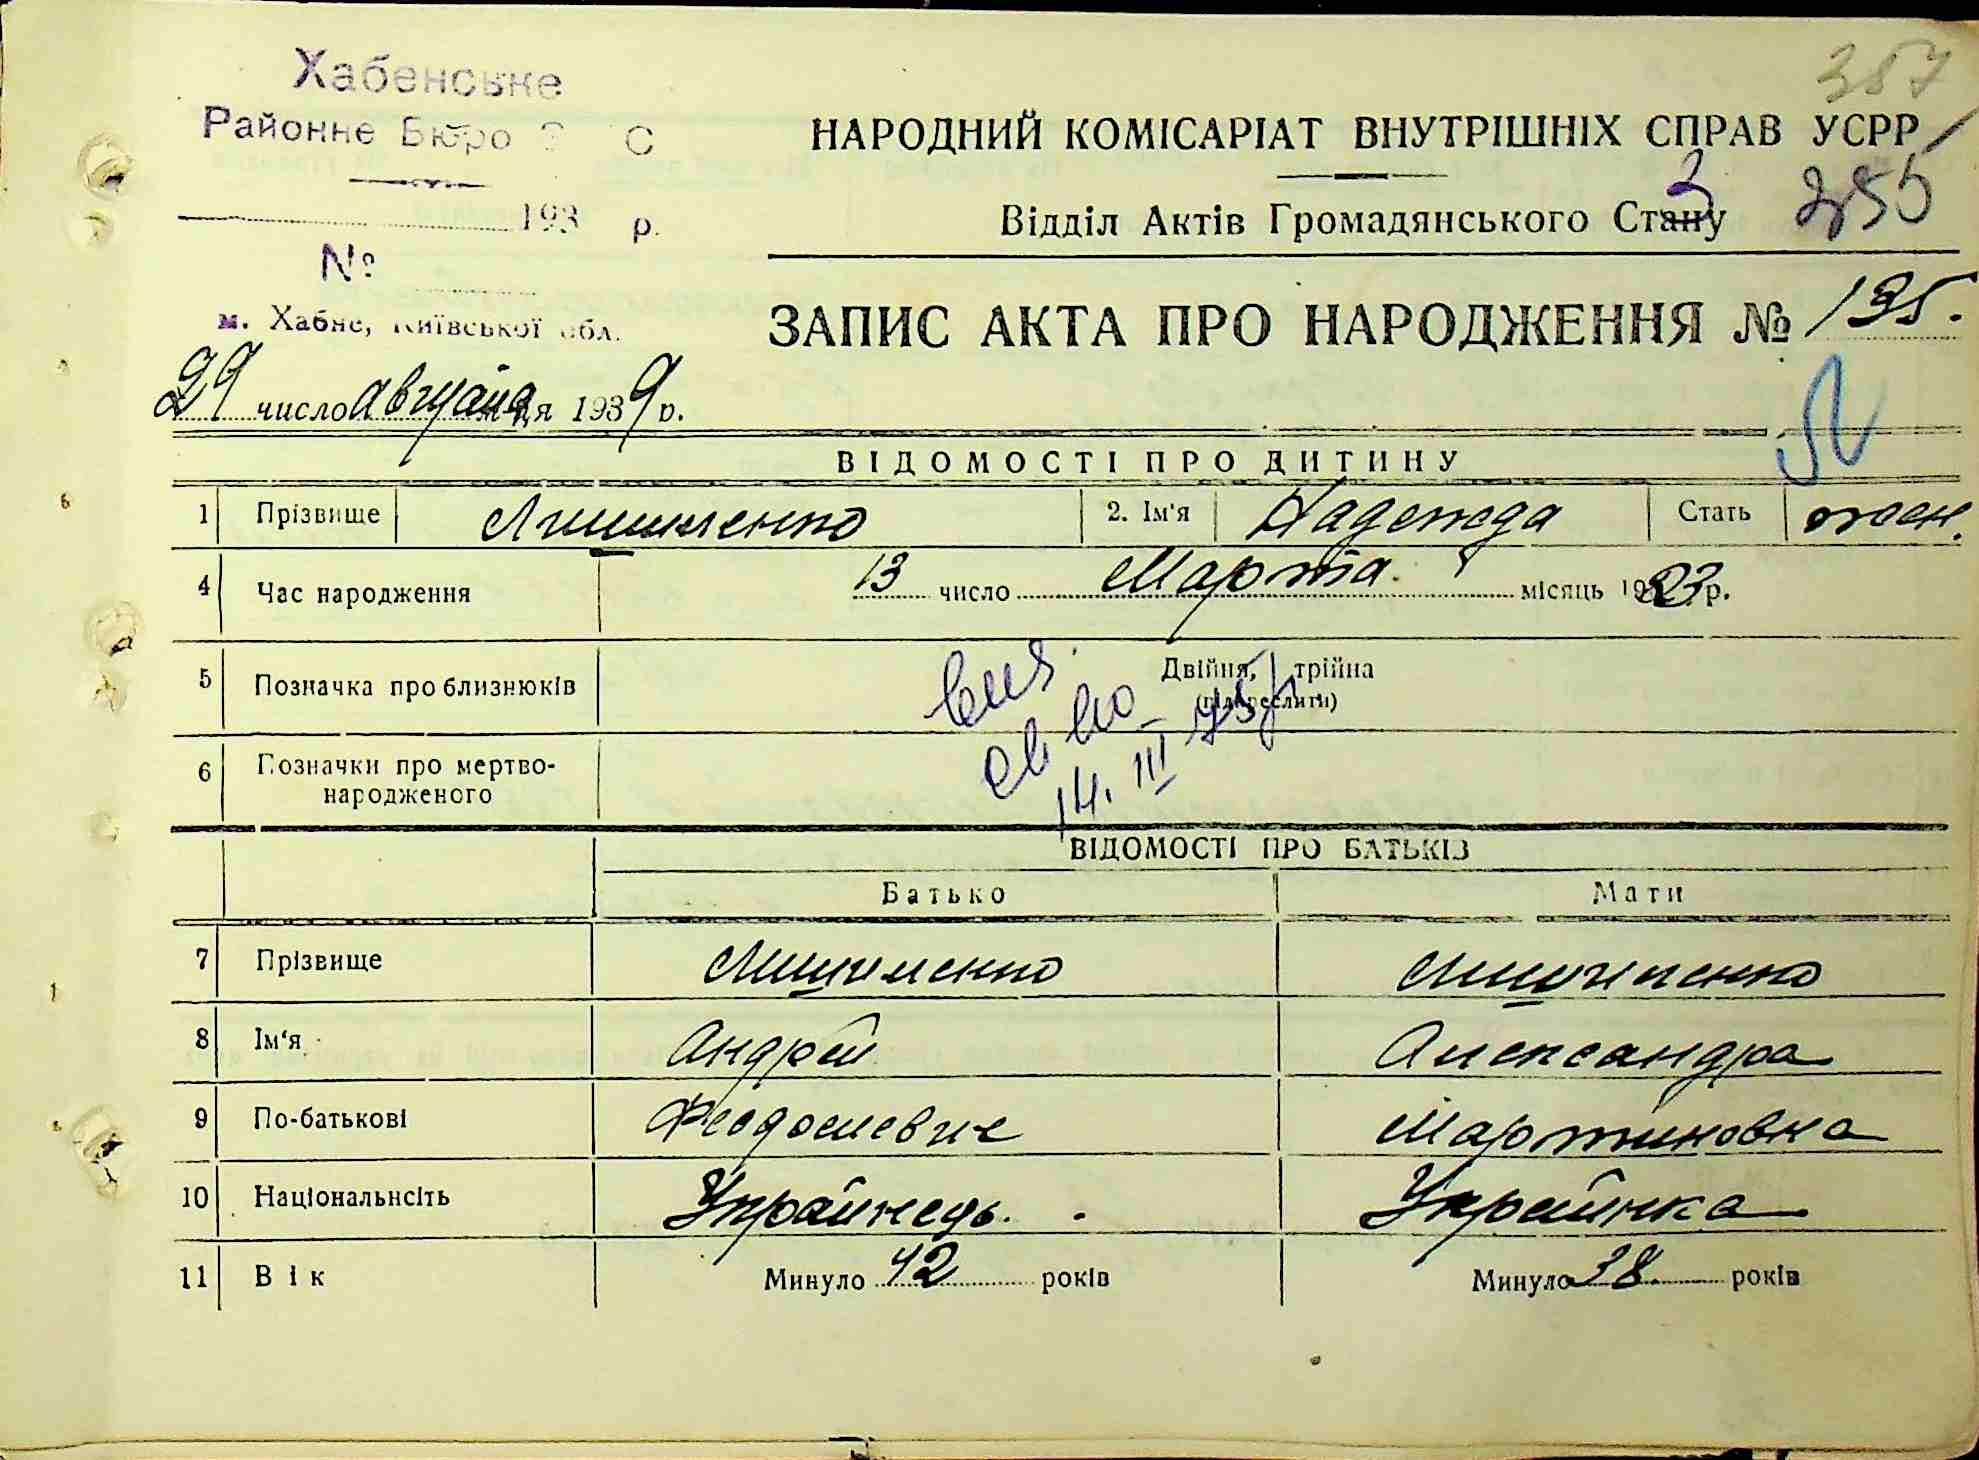 Хабенське
Районне Бюро З С
193 р.
№
м. Хабне, Київської обл.
29 число августа м-ця 1939 р.
387
НАРОДНИЙ КОМІСАРІАТ ВНУТРІШНІХ СПРАВ УСРР
Відділ Актів Громадянського Стану
3
255
ЗАПИС АКТА ПРО НАРОДЖЕННЯ № 135.
ВІДОМОСТІ ПРО ДИТИНУ
1 Прізвище Лишименко 2. Ім'я Надежда Стать жен.
4 Час народження 13 число Марта місяць 1923 р.
5 Позначка про близнюків Двійня, трійна
(підкреслити)
6 Позначки про мертво-
народженого
14. III 75 г.
ВІДОМОСТІ ПРО БАТЬКІВ
Батько Мати
7 Прізвище Лишименко Лишименко
8 Ім'я Андрей Александра
9 По-батькові Феодосиевич Мартиновка
10 Національнсіть Украйнець. Украйнка
11 Вік Минуло 42 років Минуло 38 років